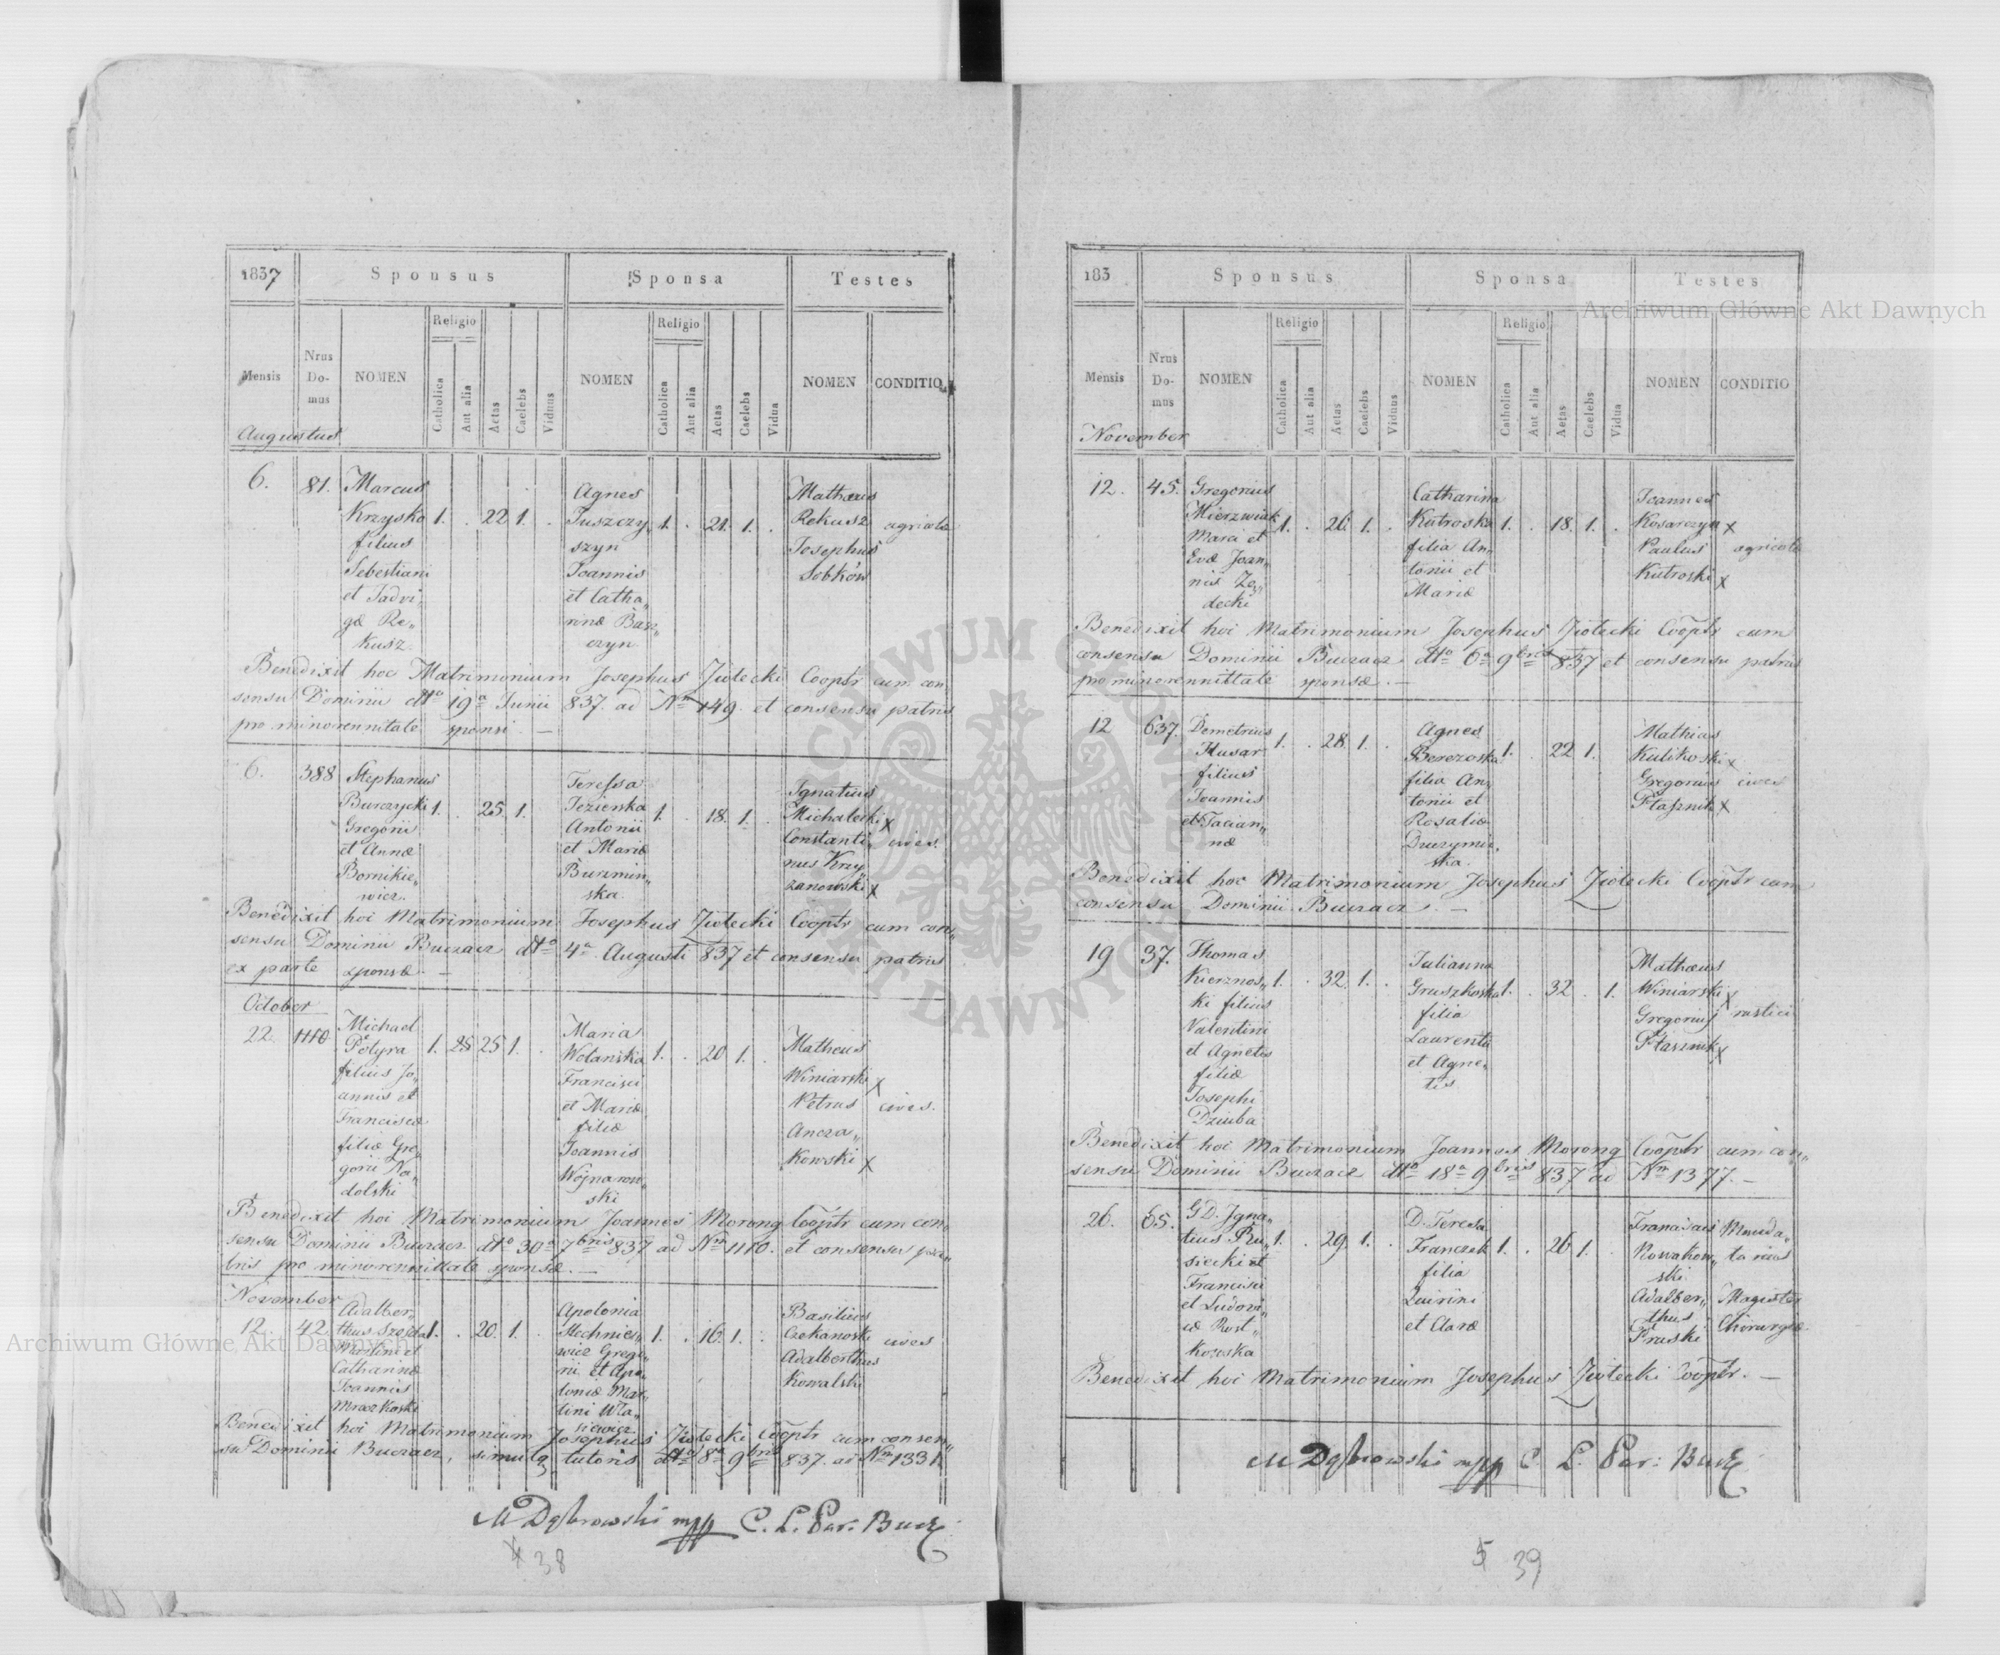 1837
Sponsus
Sponsa
Testes
Mensis
Nrus Do-mus
NOMEN
Religio
Catholica
Aut alia
Aetas
Caelebs
Viduus
NOMEN
Religio
Catholica
Aut alia
Aetas
Caelebs
Vidua
NOMEN
CONDITIO
Augustus
6. 81. Marcus
Krzysko 1. . 22 1. .
filius
Sebestiani
et Jadvi„
gæ Re„
kusz
Agnes
Tuszczy„ 1. . 21. 1. .
szyn
Joannis
et Catha„
rinæ
czyn
Mathæus
Rekusz agricola
Josephus
Sobków
Benedixit hoc Matrimonium Josephus Ziołecki Cooptr cum con„
sensu Dominii dto 19a Junii 837. ad Nm 149. et consensu patris
pro minorennitate sponsi. —
6. 388 Stephanus
Burczycki 1. . 25 1.
Gregorii
et Annæ
Bornikie„
wicz.
Teressa
Jezierska 1. . 18. 1. .
Antonii
et Mariæ
Burzmin„
ska
Ignatius
Michalecki x
Constanti„ cives.
nus Krzy„
zanowski x
Benedixit hoc Matrimonium Josephus Ziołecki Cooptr cum con„
sensu Dominii Buczacz dto 4a Augusti 837 et consensu patris
ex parte sponsæ. —
October
22. 1110 Michael
Potyra 1. 25 25 1. .
filius Jo„
annis et
Franciscæ
filiæ Gre„
gorii Na„
dolski
Maria
Wolanska 1. . 20 1. .
Francisci
et Mariæ
filiæ
Joannis
Wojnarow„
ski
Matheus
Winiarski x
Petrus cives.
Ancza„
kowski x
Benedixit hoc Matrimonium Joannes Morong Cooptr cum con„
sensu Dominii Buczacz dto 30a 7bris 837 ad Nm 1110. et consensu pa„
tris pro minorennitate sponsæ. —
November
12. 42. Adalber„
thus Szejda 1. . 20. 1. .
Martini et
Catharinæ
Joannis
Mraczkoski
Apolonia
Stechnie„ 1. . 16. 1. .
wicz Grego„
rii et Apo„
loniæ Mar„
tini Wła„
siewicz
Basilius
Czekanoski cives
Adalberthus
Kowalski
Benedixit hoc Matrimonium Josephus Ziołecki Cooptr cum consen„
su Dominii Buczacz, simulq tutoris dto 8a 9bris 837. ad Nm 1331.
M Dąbrowski mpp C. L. Par: Bucz
4 38
183
Sponsus
Sponsa
Testes
Mensis
Nrus Do-mus
NOMEN
Religio
Catholica
Aut alia
Aetas
Caelebs
Viduus
NOMEN
Religio
Catholica
Aut alia
Aetas
Caelebs
Vidua
NOMEN
CONDITIO
November
12. 45. Gregorius
Mierzwiak 1. . 26. 1. .
Marci et
Evæ Joan„
nis
decki
Catharina
Kutroska 1. . 18. 1. .
filia An„
tonii et
Mariæ
Joannes
Kosarczyn x
Paulus agricolæ
Kutroski x
Benedixit hoc Matrimonium Josephus Ziołecki Cooptr cum
consensu Dominii Buczacz dto 6a 9bris 837 et consensu patris
pro minorennittate sponsæ. —
12 637. Demetrius
Husar 1. . 28. 1. .
filius
Joannis
et Tacian„
næ
Agnes
Berezoska 1. . 22 1. .
filia An„
tonii et
Rosaliæ
ska.
Mathias
Kulikoski x
Gregorius cives
Ptasznik x
Benedixit hoc Matrimonium Josephus Ziołecki Cooptr cum
consensu Dominii Buczacz. —
19 37. Thomas
Kierznos„ 1. . 32. 1. .
ki filius
Valentini
et Agnetis
filiæ
Josephi
Dziuba
Julianna
Gruszkoska 1. . 32 . 1.
filia
Laurentii
et Agne„
tis
Mathæus
Winiarski x
Gregorius rustici
Ptasznik x
Benedixit hoc Matrimonium Joannes Morong Cooptr cum con„
sensu Dominii Buczacz dto 18a 9bris 837 ad Nm 1377. —
26. 65. GD. Igna„
tius Ru„ 1. . 29. 1. .
siecki et
Francisci
et Ludovi„
cæ Rost„
kowska
D. Teresa
Franczek 1. . 26 1. .
filia
Quirini
et Claræ
Franciscus Manda„
Nowakow„ tarius
ski
Adalber„ Magister
thus Chirurgiæ
Pruski
Benedixit hoc Matrimonium Josephus Ziołecki Cooptr. —
M Dąbrowski mpp C. L. Par: Bucz
5 39
Archiwum Główne Akt Dawnych
Archiwum Główne Akt Dawnych
ARCHIWUM GŁÓWNE AKT DAWNYCH